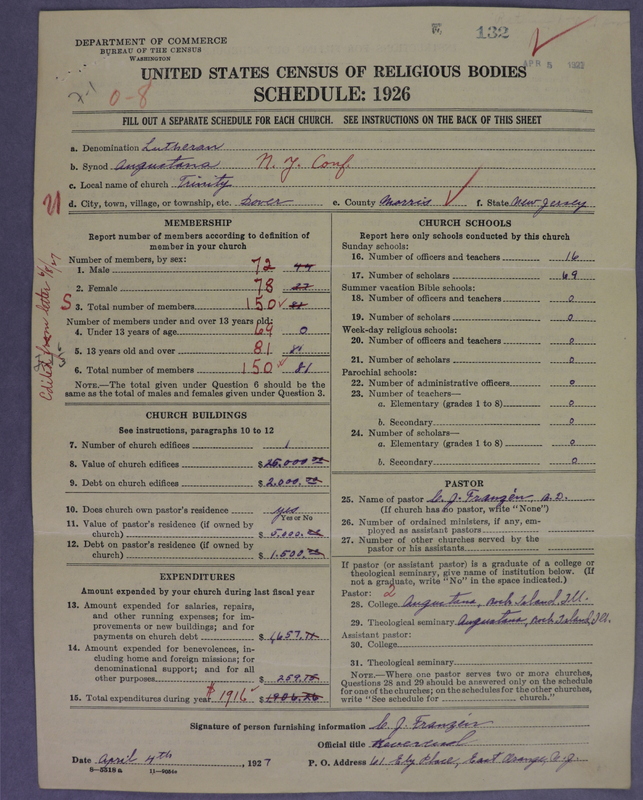 132
APR 5 1927
DEPARTMENT OF COMMERCE
BUREAU OF THE CENSUS
WASHINGTON
2-1
0-8
UNITED STATES CENSUS OF RELIGIOUS BODIES
SCHEDULE: 1926
FILL OUT A SEPARATE SCHEDULE FOR EACH CHURCH. SEE INSTRUCTIONS ON THE BACK OF THIS SHEET
a. Denomination Lutheran
b. Synod Augustana N. J. Conf.
c. Local name of church Trinity
d. City, town, village, or township, etc. Dover e. County Morris f. State New Jersey
MEMBERSHIP
Report number of members according to definition of
member in your church
Number of members, by sex:
1. Male 72 44
2. Female 78 37
S 3. Total number of members 150 81
Number of members under and over 13 years old:
4. Under 13 years of age 69 0
5. 13 years old and over 81 81
6. Total number of members 150 81
NOTE.—The total given under Question 6 should be the
same as the total of males and females given under Question 3.
CHURCH BUILDINGS
See instructions, paragraphs 10 to 12
7. Number of church edifices 1
8. Value of church edifices $ 25.000.00
9. Debt on church edifices $ 2.000.00
10. Does church own pastor's residence yes
Yes or No
11. Value of pastor's residence (if owned by
church) $ 5.000.00
12. Debt on pastor's residence (if owned by
church) $ 1.500.00
EXPENDITURES
Amount expended by your church during last fiscal year
13. Amount expended for salaries, repairs,
and other running expenses; for im-
provements or new buildings; and for
payments on church debt $ 1,657.
14. Amount expended for benevolences, in-
cluding home and foreign missions; for
denominational support; and for all
other purposes $ 259.
15. Total expenditures during year $1916
CHURCH SCHOOLS
Report here only schools conducted by this church
Sunday schools:
16. Number of officers and teachers 16
17. Number of scholars 69
Summer vacation Bible schools:
18. Number of officers and teachers 0
19. Number of scholars 0
Week-day religious schools:
20. Number of officers and teachers 0
21. Number of scholars 0
Parochial schools:
22. Number of administrative officers 0
23. Number of teachers—
a. Elementary (grades 1 to 8) 0
b. Secondary 0
24. Number of scholars—
a. Elementary (grades 1 to 8) 0
b. Secondary 0
PASTOR
25. Name of pastor C. J. Franzén,
(If church has no pastor, write "None")
26. Number of ordained ministers, if any, em-
ployed as assistant pastors
27. Number of other churches served by the
pastor or his assistants
If pastor (or assistant pastor) is a graduate of a college or
theological seminary, give name of institution below. (If
not a graduate, write "No" in the space indicated.)
Pastor: 2
28. College Augustana, Rock Island Ill.
29. Theological seminary Augustana, Rock Island, Ill.
Assistant pastor:
30. College
31. Theological seminary
NOTE.—Where one pastor serves two or more churches,
Questions 28 and 29 should be answered only on the schedule
for one of the churches; on the schedules for the other churches,
write "See schedule for church."
Signature of person furnishing information C. J. Franzén
Official title Reverend
Date April 4th, 1927 P. O. Address 61 Ely Place, East Orange, N. J.
8-5518 a 11-9034